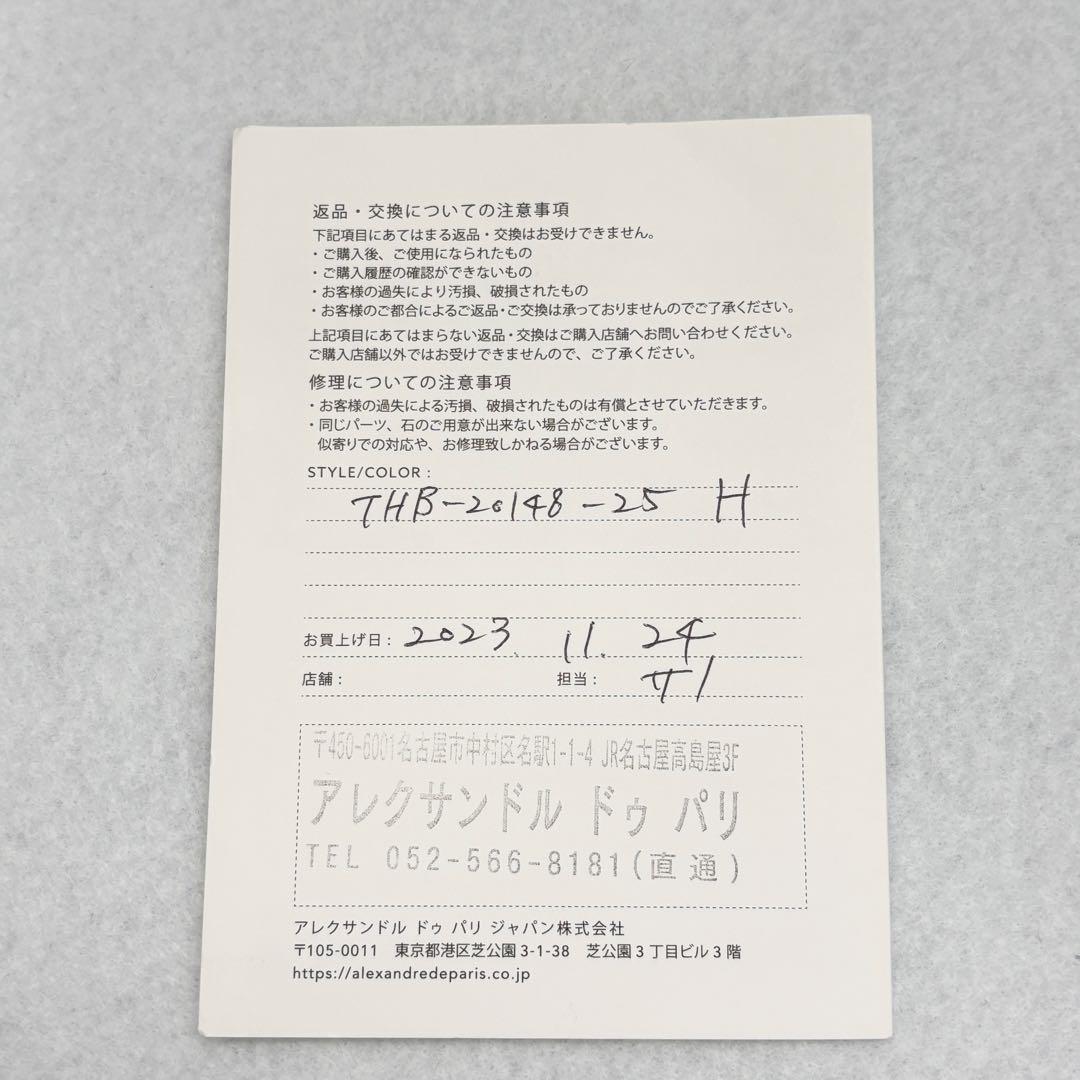 返品・交換についての注意事項
下記項目にあてはまる返品・交換はお受けできません。
・ご購入後、ご使用になられたもの
・ご購入履歴の確認ができないもの
・お客様の過失により汚損、破損されたもの
・お客様のご都合によるご返品・ご交換は承っておりませんのでご了承ください。
上記項目にあてはまらない返品・交換はご購入店舗へお問い合わせください。
ご購入店舗以外ではお受けできませんので、ご了承ください。
修理についての注意事項
・お客様の過失による汚損、破損されたものは有償とさせていただきます。
・同じパーツ、石のご用意が出来ない場合がございます。
似寄りでの対応や、お修理致しかねる場合がございます。
STYLE/COLOR :
THB-20148-25 H
お買上げ日 : 2023. 11. 24
店舗 : 担当 :
〒450-6001名古屋市中村区名駅1-1-4 JR名古屋高島屋3F
アレクサンドル ドゥ パリ
TEL 052-566-8181(直通)
アレクサンドル ドゥ パリ ジャパン株式会社
〒105-0011 東京都港区芝公園 3-1-38 芝公園 3 丁目ビル 3 階
https://alexandredeparis.co.jp